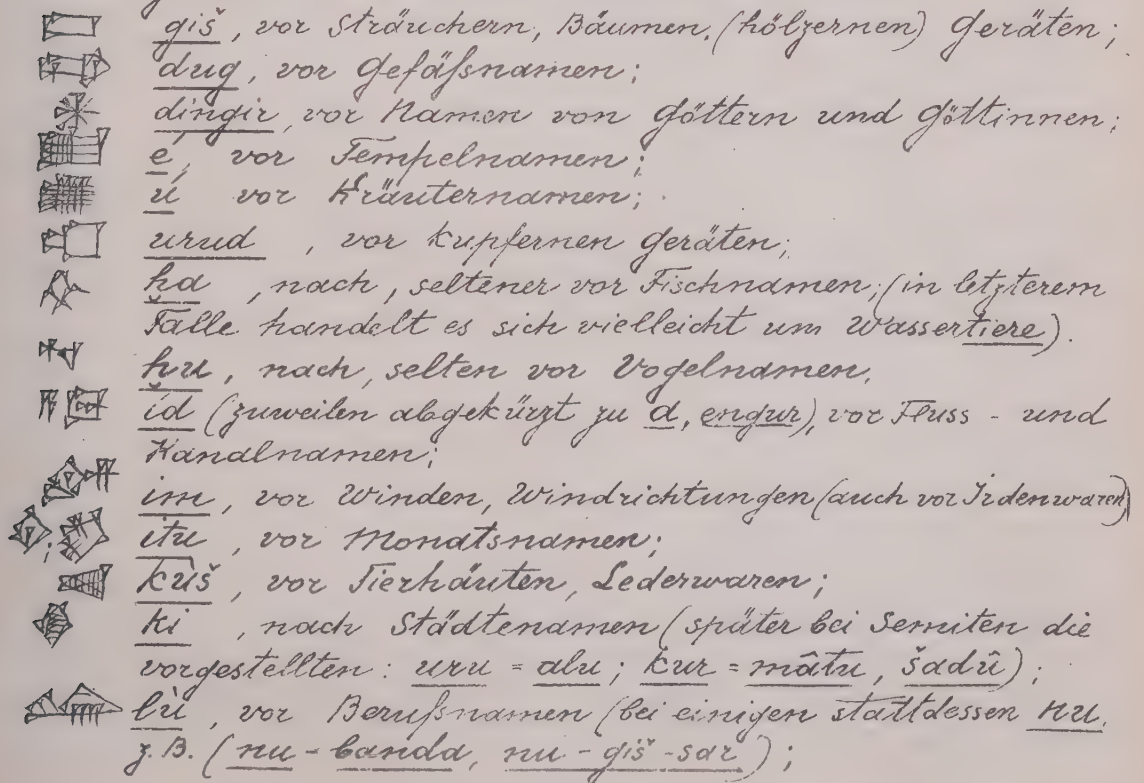 giš, vor Sträuchern, Bäumen, (hölzernen) Geräten;
dug, vor Gefäßnamen;
dingir, vor Namen von Göttern und Göttinnen;
e, vor Tempelnamen;
ú vor Kräuternamen;
urud, vor kupfernen Geräten;
ḫa, nach, seltener vor Fischnamen, (in letzterem
Falle handelt es sich vielleicht um Wassertiere).
ḫu, nach, selten vor Vogelnamen.
íd (zuweilen abgekürzt zu a, engur), vor Fluss- und
Kanalnamen;
im, vor Winden, Windrichtungen (auch vor Irdenwaren)
itu, vor Monatsnamen;
kùš, vor Tierhäuten, Lederwaren;
ki, nach Städtenamen (später bei Semiten die
vorgestellten: uru = alu; kur = mâtu, šadû);
lù, vor Berufsnamen (bei einigen stattdessen nu,
z.B. (nu-banda, nu-giš-sar);